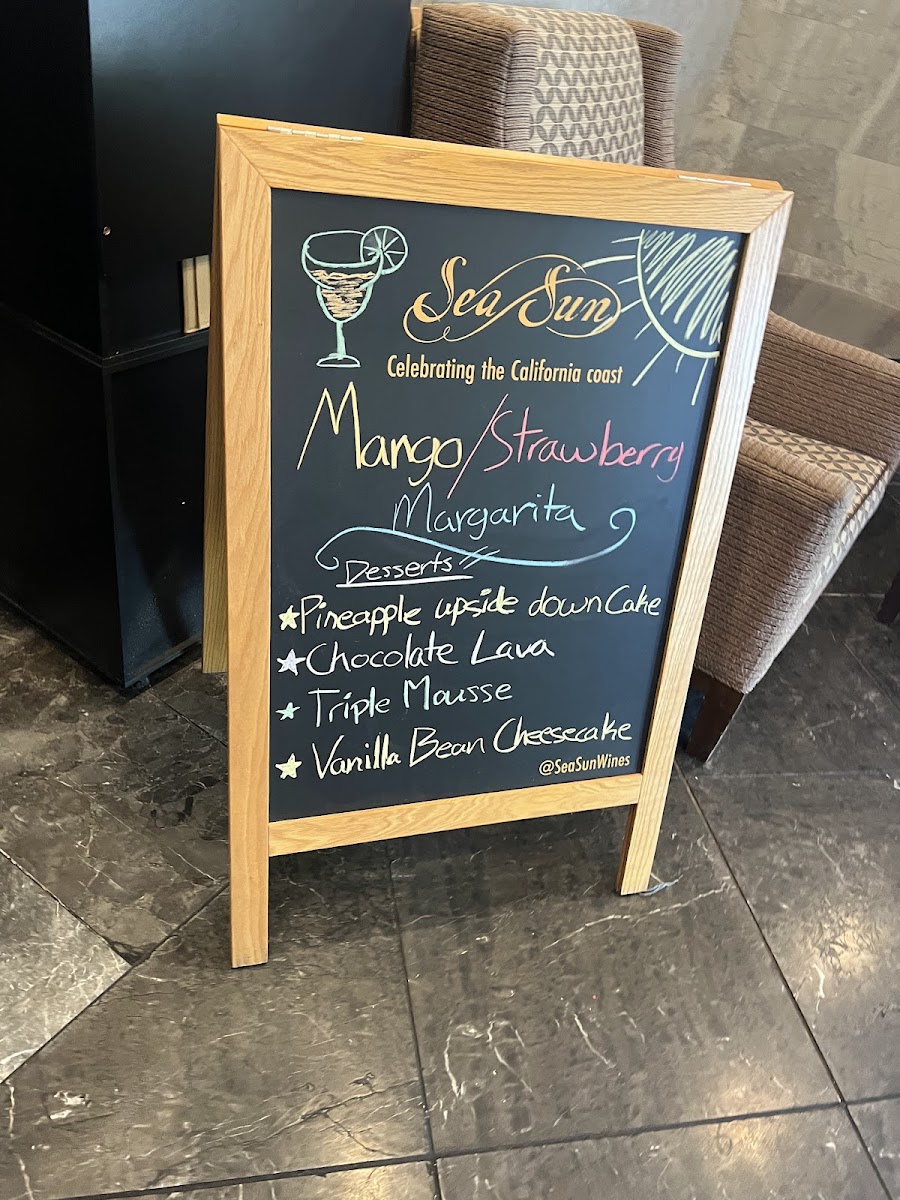 Sea Sun
Celebrating the California coast
Mango/Strawberry
Margarita
Desserts
Pineapple upside down Cake
Chocolate Lava
Triple Mousse
Vanilla Bean Cheesecake
@SeaSunWines